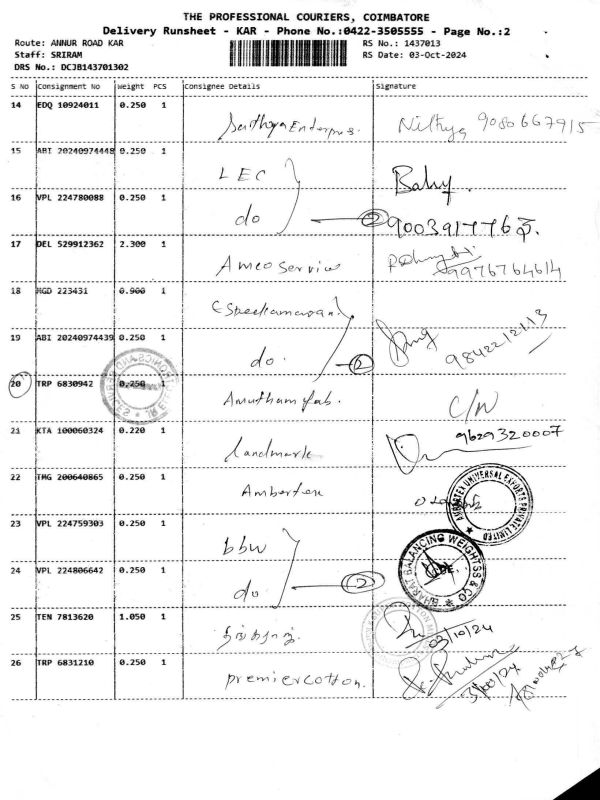 THE PROFESSIONAL COURIERS, COIMBATORE
Delivery Runsheet - KAR - Phone No.:0422-3505555 - Page No.:2
Route: ANNUR ROAD KAR
RS No.: 1437013
Staff: SRIRAM
RS Date: 03-Oct-2024
DRS No.: DCJB143701302
S No Consignment No Weight PCS Consignee Details Signature
14 EDQ 10924011 0.250 1
Nithya 9080667915
15 ABI 20240974448 0.250 1
LEC
Baby.
16 VPL 224780088 0.250 1
do 2
17 DEL 529912362 2.300 1
Ameo Service
9976764614
18 MGD 223431 0.900 1
19 ABI 20240974439 0.250 1
do. 2
20 TRP 6830942 0.250 1
Amutham fab.
C/N
21 KTA 100060324 0.220 1
Landmark
9629320007
22 TMG 200640865 0.250 1
Ambertex
AMBERTEX UNIVERSAL EXPORTS PRIVATE LIMITED
23 VPL 224759303 0.250 1
bbw
BHARAT BALANCING WEIGHTSS & CO
24 VPL 224806642 0.250 1
do 2
25 TEN 7813620 1.050 1
03/10/24
26 TRP 6831210 0.250 1
premier cotton.